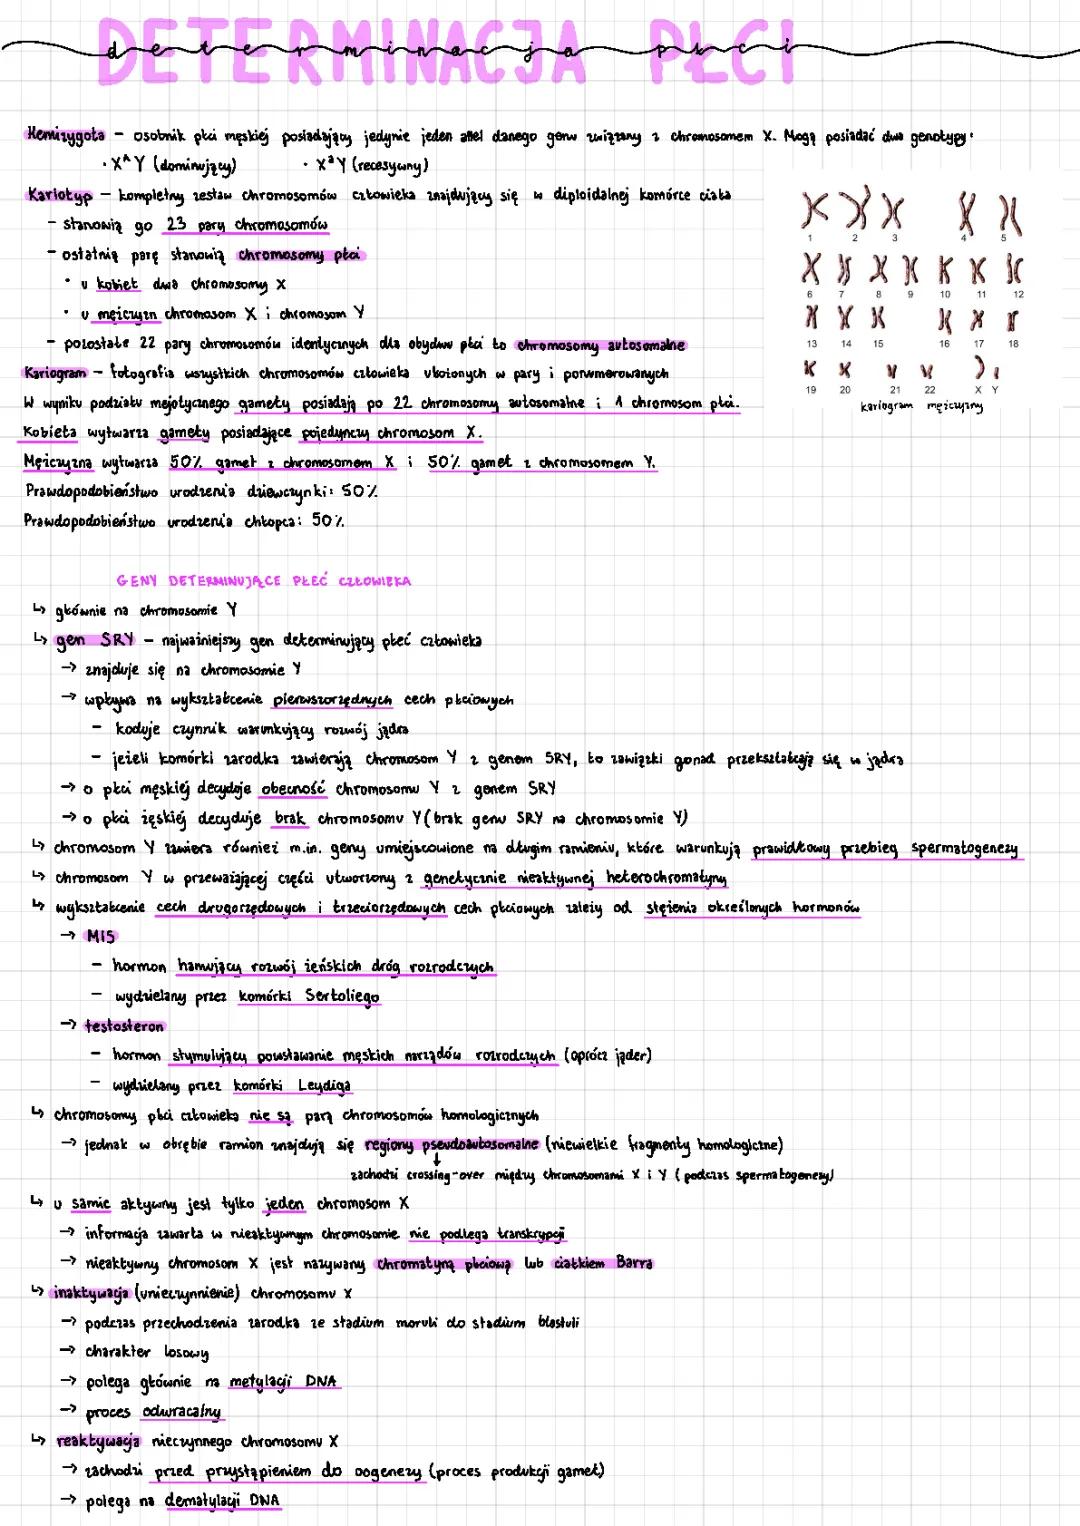 DETERMINACJA PŁCI
determinacja płci
Hemizygota – osobnik płci męskiej posiadający jedynie jeden allel danego genu związany z chromosomem X. Mogą posiadać dwa genotypy:
· X^A Y (dominujący) · X^a Y (recesywny)
Kariotyp – kompletny zestaw chromosomów człowieka znajdujący się w diploidalnej komórce ciała
– stanowią go 23 pary chromosomów
– ostatnią parę stanowią chromosomy płci
· u kobiet dwa chromosomy X
· u mężczyzn chromosom X i chromosom Y
– pozostałe 22 pary chromosomów identycznych dla obydwu płci to chromosomy autosomalne
Kariogram – fotografia wszystkich chromosomów człowieka ułożonych w pary i ponumerowanych
W wyniku podziału mejotycznego gamety posiadają po 22 chromosomy autosomalne i 1 chromosom płci.
Kobieta wytwarza gamety posiadające pojedynczy chromosom X.
Mężczyzna wytwarza 50% gamet z chromosomem X i 50% gamet z chromosomem Y.
Prawdopodobieństwo urodzenia dziewczynki: 50%
Prawdopodobieństwo urodzenia chłopca: 50%
1 2 3 4 5
6 7 8 9 10 11 12
13 14 15 16 17 18
19 20 21 22 X Y
kariogram mężczyzny
GENY DETERMINUJĄCE PŁEĆ CZŁOWIEKA
↳ głównie na chromosomie Y
↳ gen SRY – najważniejszy gen determinujący płeć człowieka
→ znajduje się na chromosomie Y
→ wpływa na wykształcenie pierwszorzędnych cech płciowych
– koduje czynnik warunkujący rozwój jądra
– jeżeli komórki zarodka zawierają chromosom Y z genem SRY, to zawiązki gonad przekształcają się w jądra
→ o płci męskiej decyduje obecność chromosomu Y z genem SRY
→ o płci żęskiej decyduje brak chromosomu Y (brak genu SRY na chromosomie Y)
↳ chromosom Y zawiera również m.in. geny umiejscowione na długim ramieniu, które warunkują prawidłowy przebieg spermatogenezy
↳ chromosom Y w przeważającej części utworzony z genetycznie nieaktywnej heterochromatyny
↳ wykształcenie cech drugorzędowych i trzeciorzędowych cech płciowych zależy od stężenia określonych hormonów
→ MIS
– hormon hamujący rozwój żeńskich dróg rozrodczych
– wydzielany przez komórki Sertoliego
→ testosteron
– hormon stymulujący powstawanie męskich narządów rozrodczych (oprócz jąder)
– wydzielany przez komórki Leydiga
↳ chromosomy płci człowieka nie są parą chromosomów homologicznych
→ jednak w obrębie ramion znajdują się regiony pseudoautosomalne (niewielkie fragmenty homologiczne)
↓
zachodzi crossing-over między chromosomami X i Y (podczas spermatogenezy)
↳ u samic aktywny jest tylko jeden chromosom X
→ informacja zawarta w nieaktywnym chromosomie nie podlega transkrypcji
→ nieaktywny chromosom X jest nazywany chromatyną płciową lub ciałkiem Barra
↳ inaktywacja (unieczynnienie) chromosomu X
→ podczas przechodzenia zarodka ze stadium moruli do stadium blastuli
→ charakter losowy
→ polega głównie na metylacji DNA
→ proces odwracalny
↳ reaktywacja nieczynnego chromosomu X
→ zachodzi przed przystąpieniem do oogenezy (proces produkcji gamet)
→ polega na dematylacji DNA